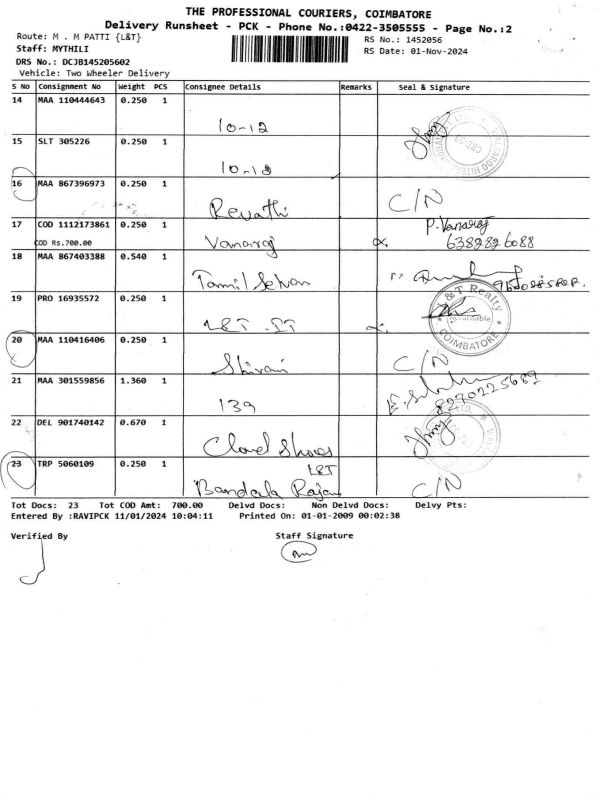 THE PROFESSIONAL COURIERS, COIMBATORE
Delivery Runsheet - PCK - Phone No.:0422-3505555 - Page No.:2
Route: M . M PATTI {L&T}
RS No.: 1452056
Staff: MYTHILI
RS Date: 01-Nov-2024
DRS No.: DCJB145205602
Vehicle: Two Wheeler Delivery
S No Consignment No Weight PCS Consignee Details Remarks Seal & Signature
14 MAA 110444643 0.250 1
10-12
15 SLT 305226 0.250 1
10-18
16 MAA 867396973 0.250 1
Revathi C/N
17 COD 1112173861 0.250 1 P. Vanaraj
COD Rs.700.00 Vanaraj 6382826088
18 MAA 867403388 0.540 1
Tamil Selvan
19 PRO 16935572 0.250 1 L&T Realty
L&T - IT COIMBATORE
20 MAA 110416406 0.250 1
Shivani C/N
21 MAA 301559856 1.360 1
139 8270225689
22 DEL 901740142 0.670 1
Cloud Shoes
23 TRP 5060109 0.250 1 L&T
Rajan C/N
Tot Docs: 23 Tot COD Amt: 700.00 Delvd Docs: Non Delvd Docs: Delvy Pts:
Entered By :RAVIPCK 11/01/2024 10:04:11 Printed On: 01-01-2009 00:02:38
Verified By Staff Signature